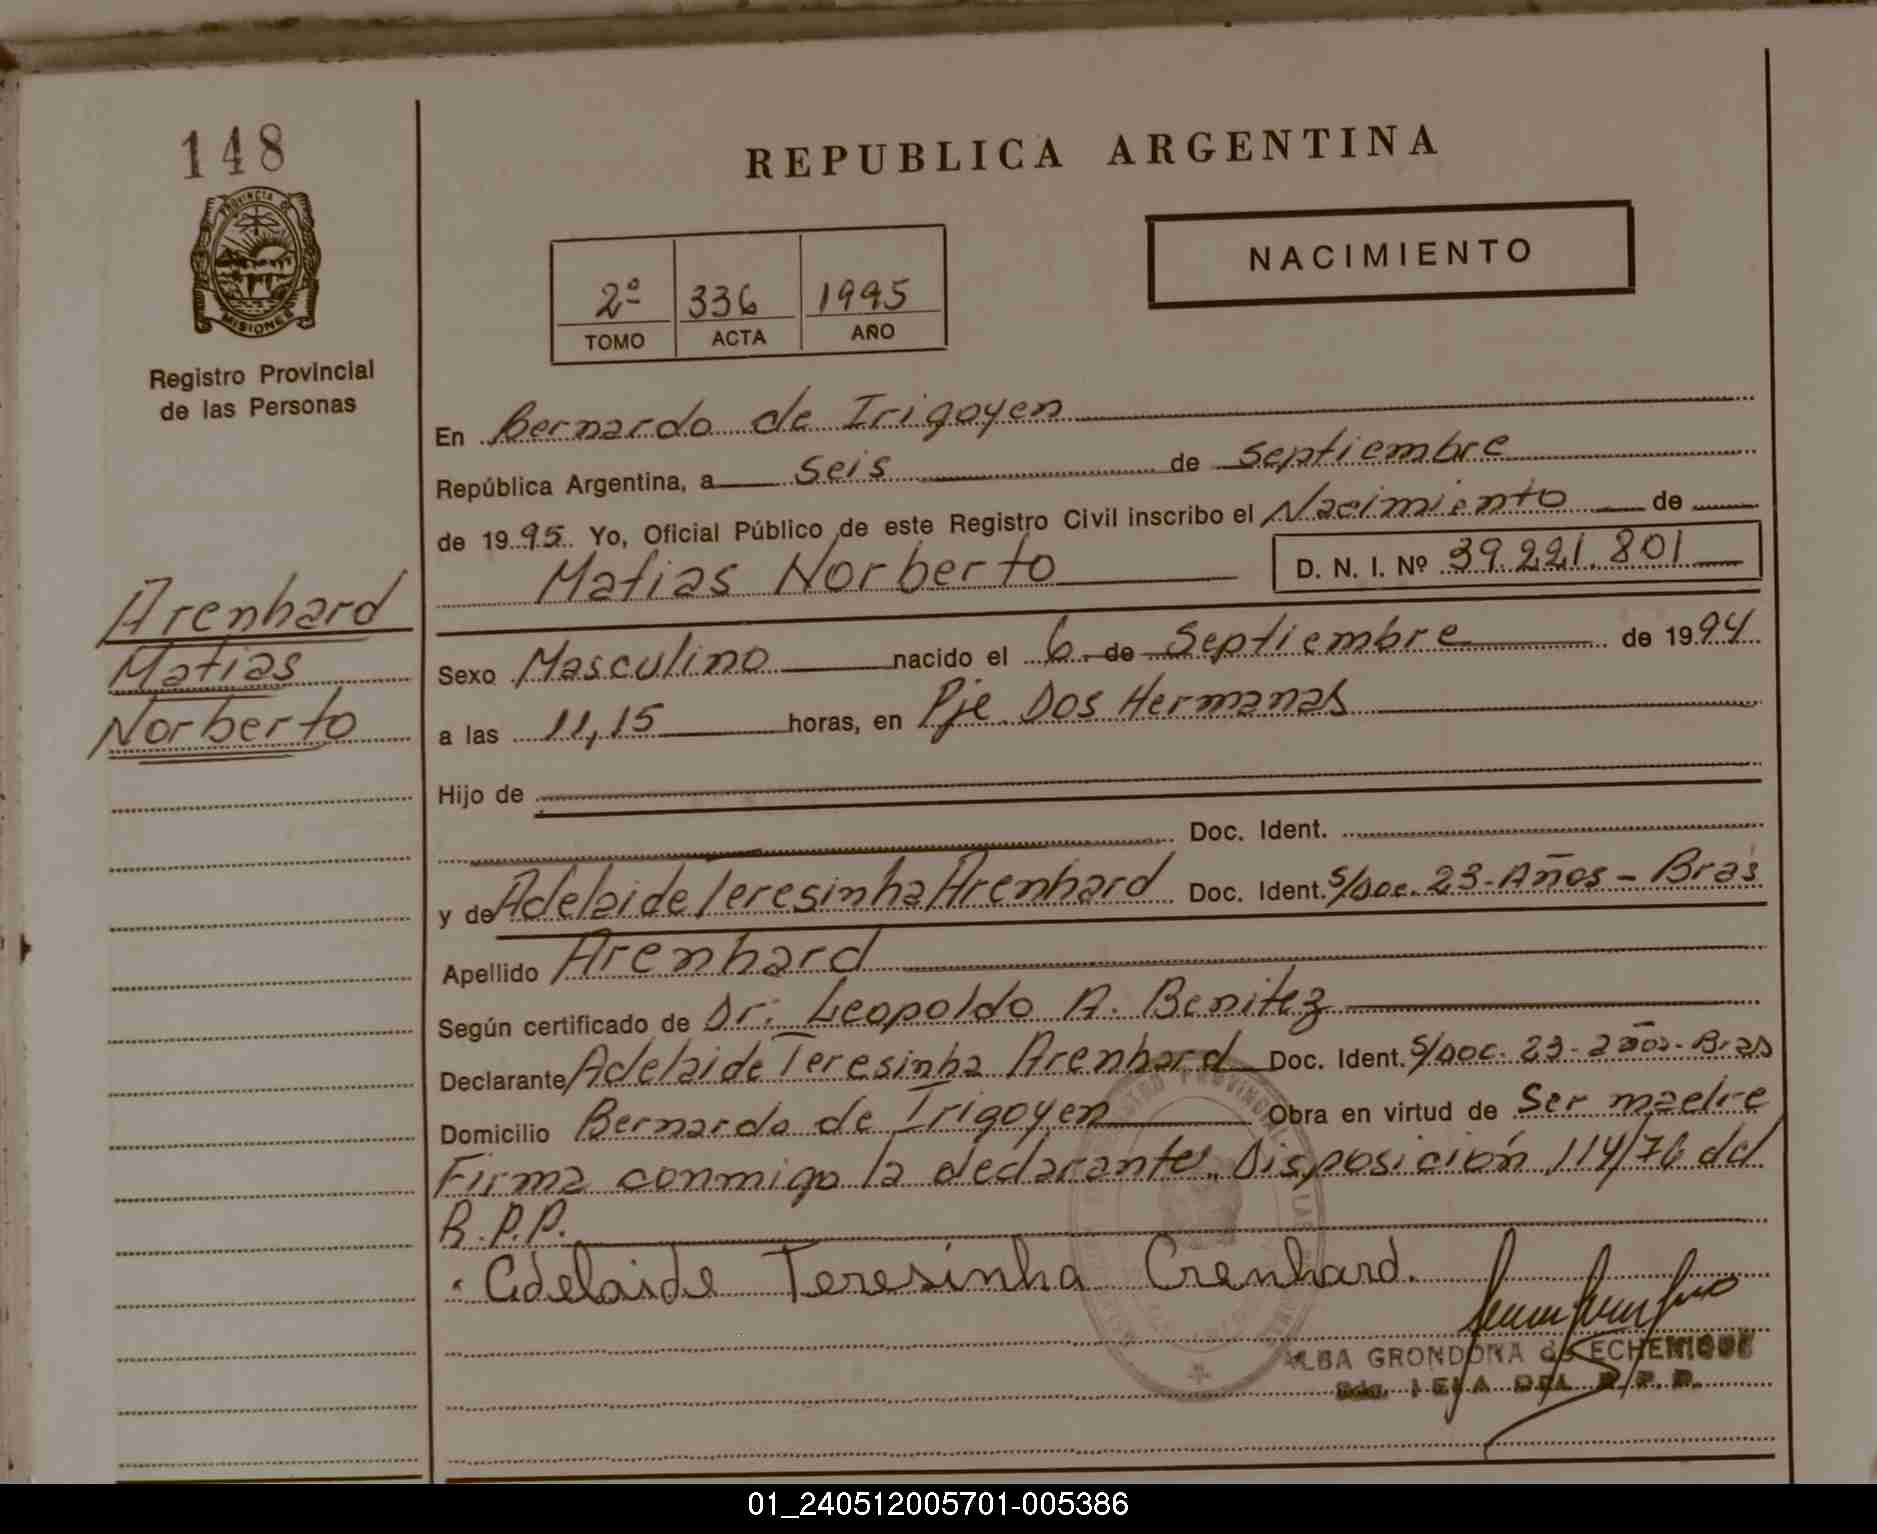 148
PROVINCIA DE
MISIONES
Registro Provincial
de las Personas
Arenhard
Matias
Norberto
REPUBLICA ARGENTINA
NACIMIENTO
2º 336 1995
TOMO ACTA AÑO
En Bernardo de Irigoyen
República Argentina, a seis de septiembre
de 1995 Yo, Oficial Público de este Registro Civil inscribo el Nacimiento de
Matias Norberto D. N. I. Nº 39.221.801
Sexo Masculino nacido el 6 de Septiembre de 1994
a las 11,15 horas, en Pje Dos Hermanas
Hijo de
Doc. Ident.
y de Adelaide Teresinha Arenhard Doc. Ident. S/Doc. 23-Años-Bras
Apellido Arenhard
Según certificado de Dr: Leopoldo A. Benitez
Declarante Adelaide Teresinha Arenhard Doc. Ident. S/Doc. 23-años-Bras
Domicilio Bernardo de Irigoyen Obra en virtud de Ser madre
Firma conmigo la declarante. Disposición 114/76 del
R.P.P.
Adelaide Teresinha Crenhard.
ALBA GRONDONA de ECHENIQUE
DEL R.P.P.
01_240512005701-005386